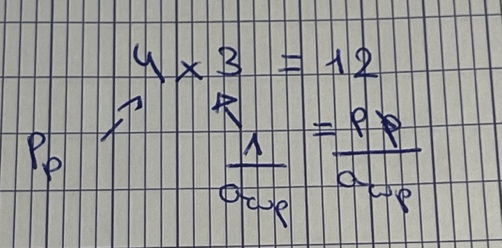 4 × 3 = 12
Pp
1/awp = Pp/awp